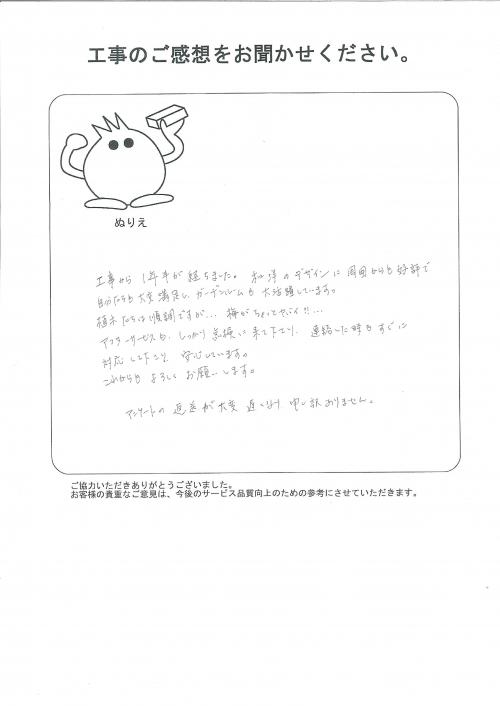 工事のご感想をお聞かせください。
ぬりえ
工事から 1年半が経ちました。 和洋のデザインに 周囲からも 好評で
自分たちも 大変満足し、ガーデンルームも 大活躍しています。
植木たちは 順調ですが… 梅がちょっとヤバイ!!…
アフターサービスも、しっかり 点検に 来て下さり、 連絡した時も すぐに
対応して下さり 安心しています。
これからも よろしく お願いします。
アンケートの 返送が 大変 遅くなり 申し訳ありません。
ご協力いただきありがとうございました。
お客様の貴重なご意見は、今後のサービス品質向上のための参考にさせていただきます。